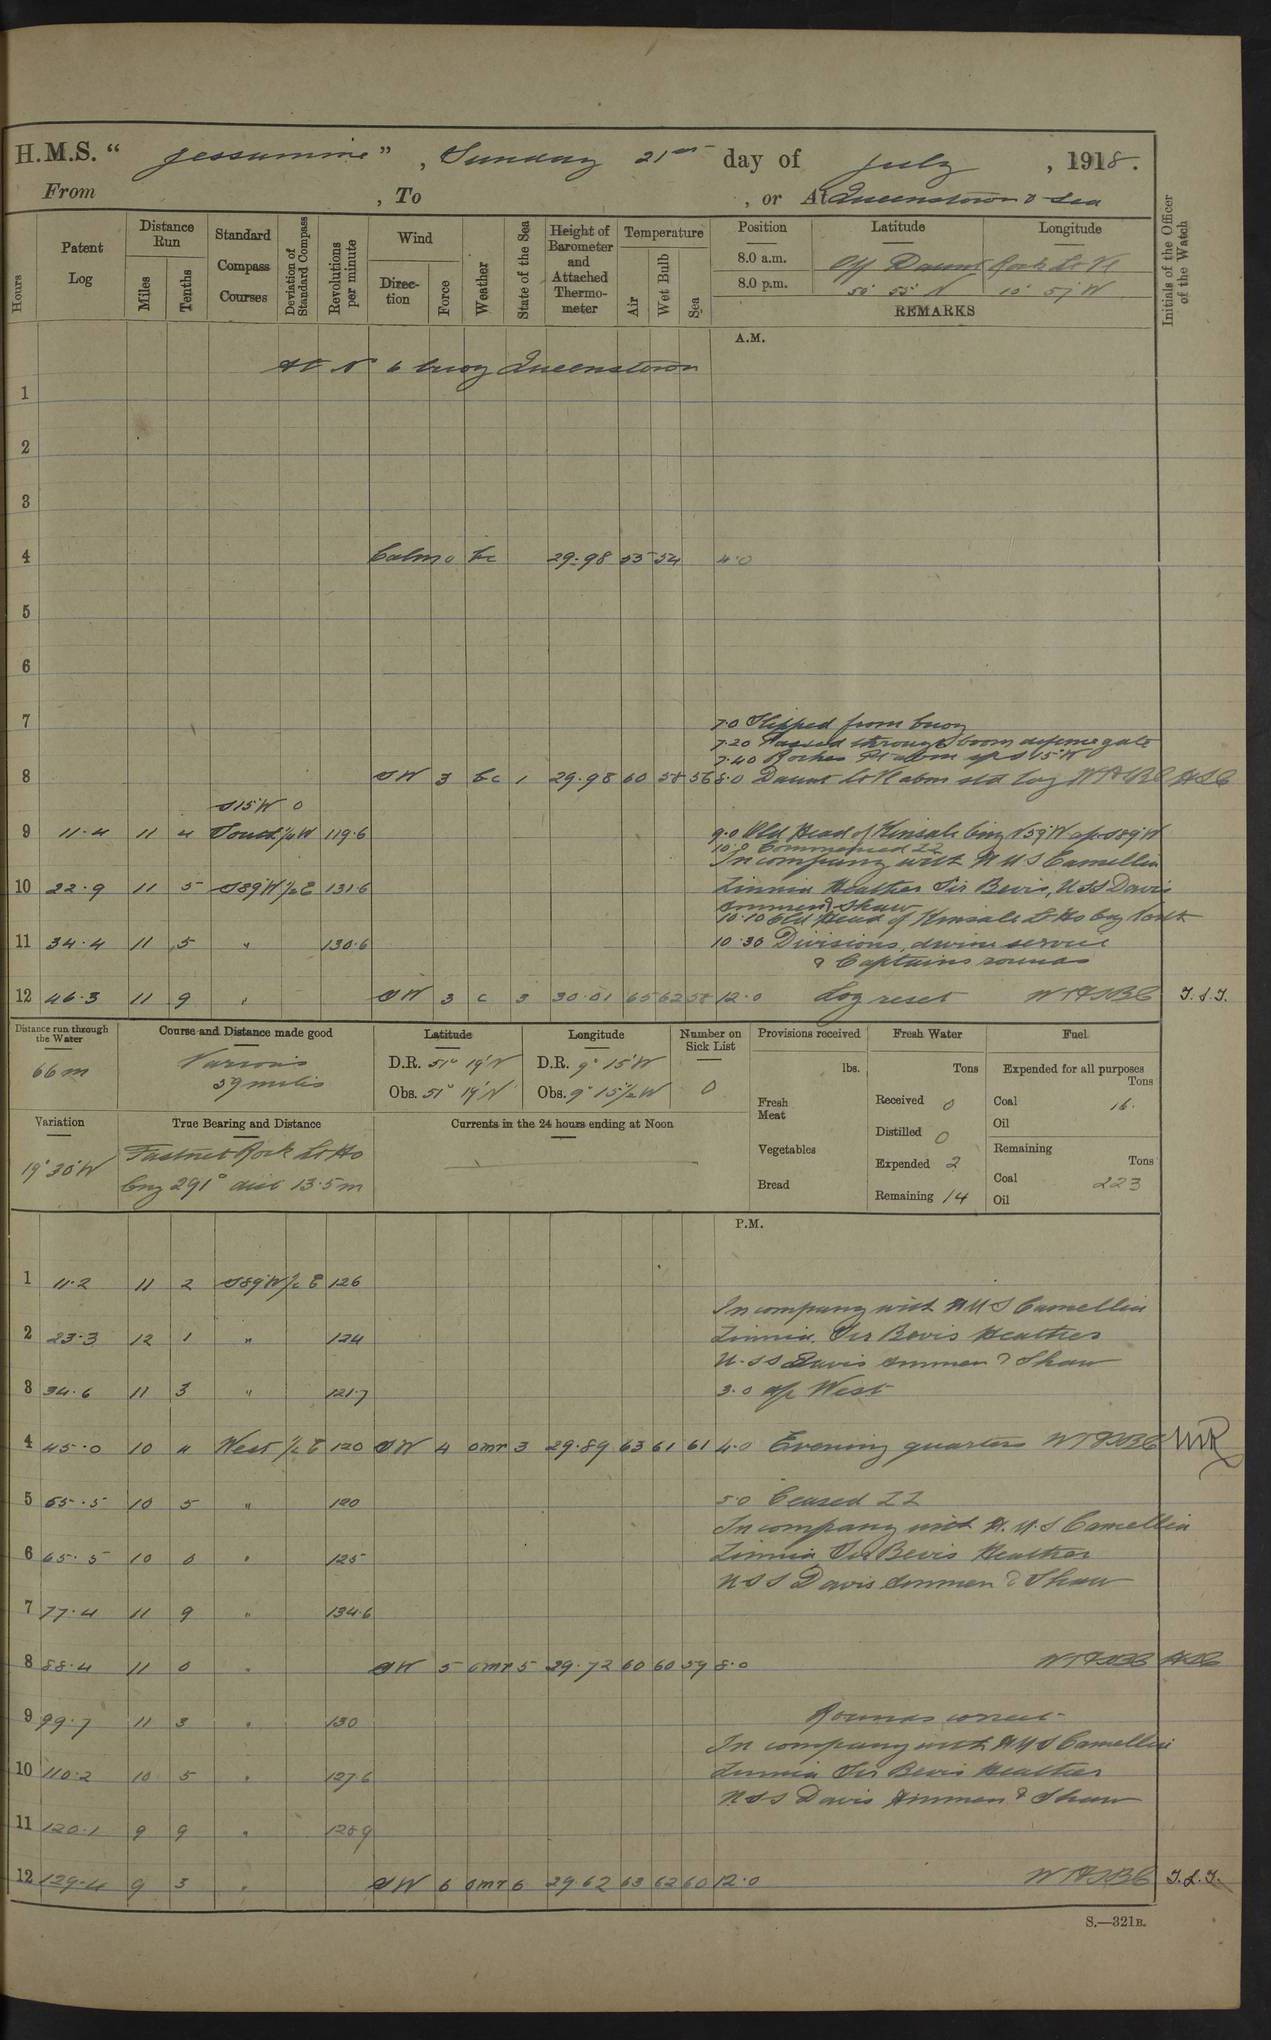 H.M.S. " Jessamine " , Sunday 21st day of July , 1918.
From , To , or At Queenstown & Sea
Hours
Patent Log
Distance Run
Miles
Tenths
Standard Compass Courses
Deviation of Standard Compass
Revolutions per minute
Wind
Direction
Force
Weather
State of the Sea
Height of Barometer and Attached Thermometer
Temperature
Air
Wet Bulb
Sea
Position Latitude Longitude
8.0 a.m. Off Daunt Rock Lt Vl
8.0 p.m. 50° 55' N 10° 57' W
REMARKS
Initials of the Officer of the Watch
A.M.
At No 6 buoy Queenstown
1
2
3
4 Calm 0 bc 29.98 55 54 4.0
5
6
7 7.0 Slipped from buoy
7.20 Passed through boom defence gate
7.40 Roches Pt abm a/c S 15° W
8 SW 3 bc 1 29.98 60 58 56 8.0 Daunt Lt Vl abm set log
S15°W 0
9 11.4 11 4 South ½W 119.6 9.0 Old Head of Kinsale brg N59°W a/c S89°W
10.0 Commenced ZZ
In company with H M S Camellia
10 22.9 11 5 S89°W ½E 131.6 Zinnia Heather Sir Bevis, USS Davis
Ammen & Shaw
10.10 Old Head of Kinsale Lt Ho brg North
11 34.4 11 5 " 130.6 10.30 Divisions, divine service
& Captains rounds
12 46.3 11 9 " SW 3 c 3 30.01 65 62 58 12.0 Log reset J.S.J.
Distance run through the Water
66m
Course and Distance made good
Various
59 miles
Latitude
D.R. 51° 19' N
Obs. 51° 19' N
Longitude
D.R. 9° 15' W
Obs. 9° 15½' W
Number on Sick List
0
Provisions received
lbs.
Fresh Meat
Vegetables
Bread
Fresh Water
Tons
Received 0
Distilled 0
Expended 2
Remaining 14
Fuel
Expended for all purposes
Tons
Coal 16.
Oil
Remaining
Tons
Coal 223
Oil
Variation
19° 30' W
True Bearing and Distance
Fastnet Rock Lt Ho
brg 291° dist 13.5m
Currents in the 24 hours ending at Noon
P.M.
1 11.2 11 2 S89°W ½E 126
In company with H M S Camellia
2 23.3 12 1 " 124 Zinnia, Sir Bevis Heather
U.S.S Davis Ammen & Shaw
3 34.6 11 3 " 121.7 3.0 a/c West
4 45.0 10 4 West ½E 120 SW 4 omr 3 29.89 63 61 61 4.0 Evening quarters
5 55.5 10 5 " 120 5.0 Ceased ZZ
In company with H.M.S Camellia
6 65.5 10 0 " 125 Zinnia Sir Bevis Heather
USS Davis Ammen & Shaw
7 77.4 11 9 " 134.6
8 88.4 11 0 " SW 5 omr 5 29.72 60 60 59 8.0
9 99.7 11 3 " 130 Rounds correct
In company with H M S Camellia
10 110.2 10 5 " 127.6 Zinnia Sir Bevis Heather
USS Davis Ammen & Shaw
11 120.1 9 9 "
12 129.4 9 3 " SW 6 omr 6 29.62 63 62 60 12.0 J.S.J.
S.—321B.